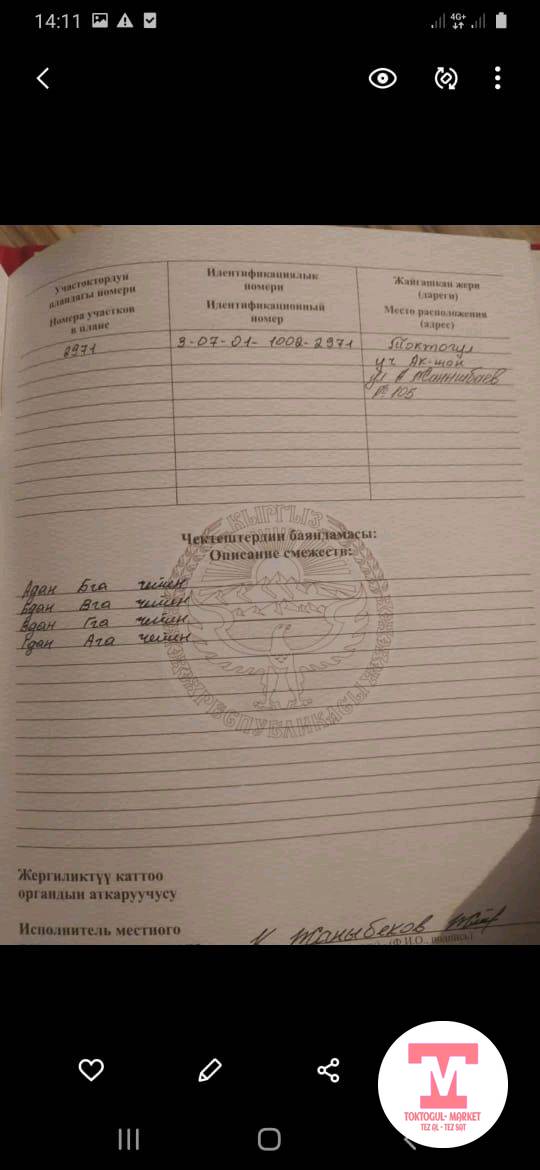 14:11
4G+
Участоктордун
пландагы номери
Номера участков
в плане
Идентификациялык
номери
Идентификационный
номер
Жайгашкан жери
(дареги)
Место расположения
(адрес)
2971
3-07-01-1002-2971
Токтогул
уч Ак-шоң
ул
№ 105
КЫРГЫЗ
РЕСПУБЛИКАСЫ
Чектештердин баяндамасы:
Описание смежеств:
Адан Бга чейин
Бдан Вга чейин
Вдан Гга чейин
Гдан Ага чейин
Жергиликтүү каттоо
органдын аткаруучусу
Исполнитель местного
К Жаныбеков
(Ф.И.О., подпись)
TM
TOKTOGUL-MARKET
TEZ AL - TEZ SAT